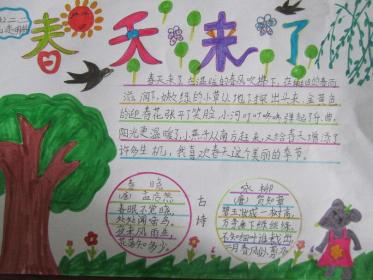 春天来了
春天来了,在温暖的春风吹拂下,在细细的春雨
滋润下,嫩绿的小草从地下探出头来,金黄色
的迎春花张开了笑脸,小河叮叮咚咚弹起了曲。
阳光更温暖了,小燕子从南方赶来,又给春天增添了
许多生机,我喜欢春天这个美丽的季节。
春晓
(唐)孟浩然
春眠不觉晓,
处处闻啼鸟。
夜来风雨声,
花落知多少。
古诗
咏柳
(唐)贺知章
碧玉妆成一树高,
万条垂下绿丝绦。
不知细叶谁裁出,
二月春风似剪刀